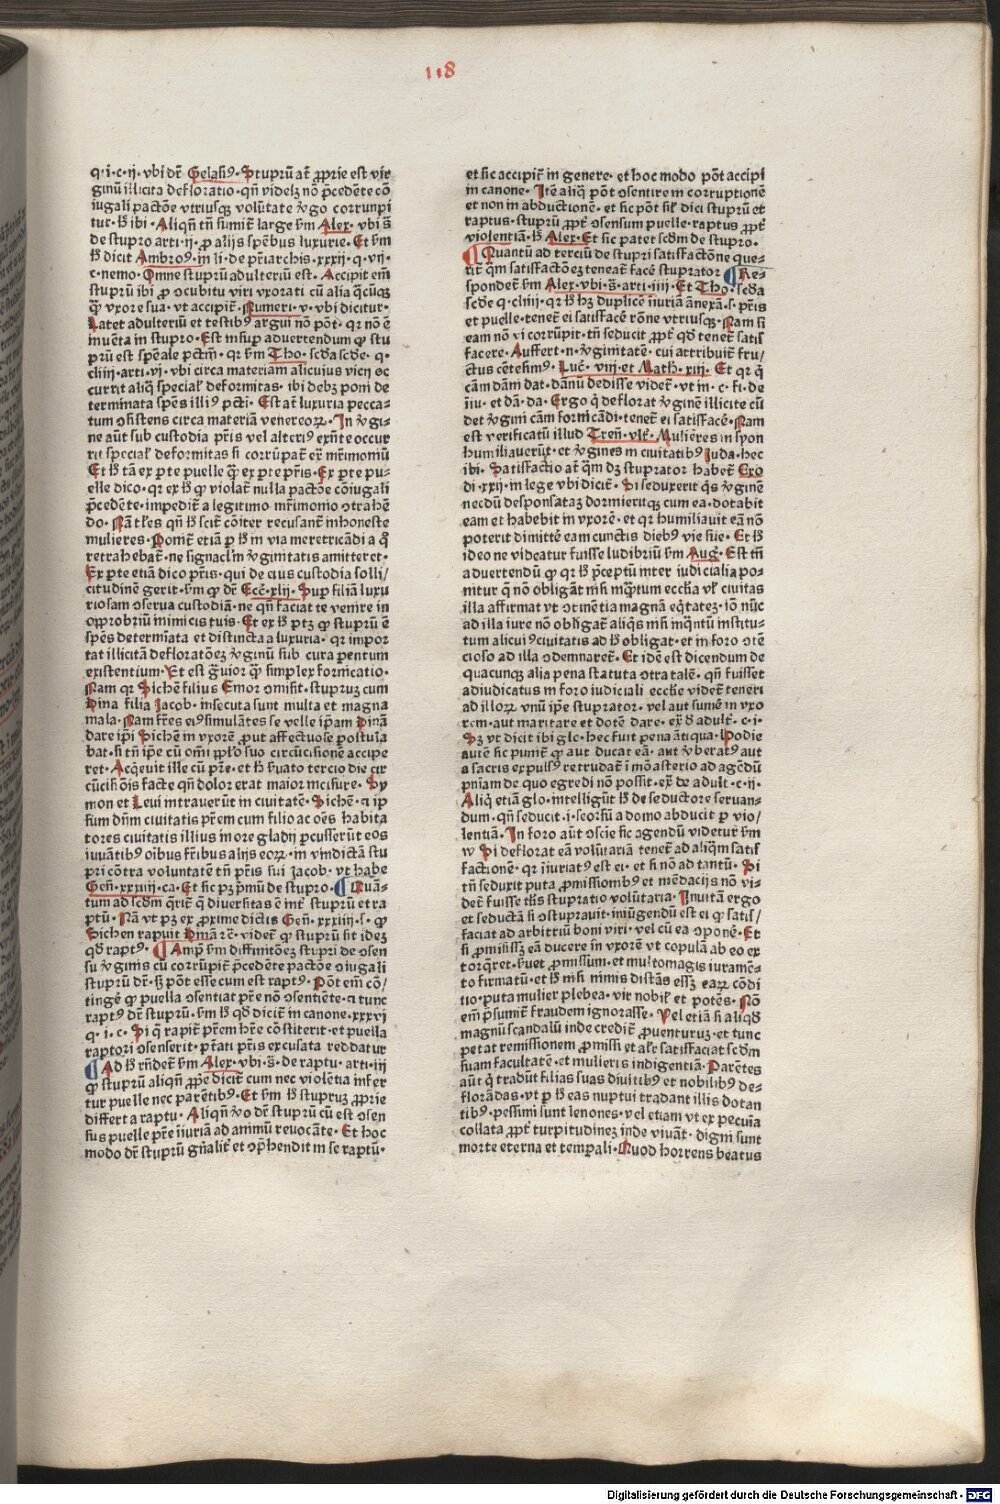 118
q·i·c·ij· vbi dr̄ Gelasi⁹· Stuprū at̄ ꝓprie est vir
ginū illicita defloratio· qn̄ videlz nō p̄cedēte cō
iugali pactōe vtriusqꝫ volūtate v̓go corrunpi
tur· h̄ ibi · Aliqn̄ tn̄ sumit̄ large s̄m Alex· vbi s̄
de stupro arti·ij· ꝓ alijs spēbus luxurie· Et s̄m
h̄ dicit Ambro⁹· in li· de pr̄iarchis·xxxij·q·vij·
c·nemo· Omne stuprū adulteriū est· Accipit em̄
stuprū ibi ꝓ ↄcubitu viri vxorati cū alia q̄cūqꝫ
q̄ꝫ vxore sua· vt accipit̄· Numeri·v·vbi dicitur·
Latet adulteriū et testib⁹ argui nō pōt· qr nō ē
inuēta in stupro· Est insuꝑ aduertendum ꝙ stu
prū est spēale pctm̄· qr s̄m Tho· scd̄a scd̄e· q·
cliiij·arti·vj· vbi circa materiam alicuius vicij oc
currit aliq̄ special̓ deformitas· ibi debꝫ poni de
terminata spēs illi⁹ pcti· Est at̄ luxuria pecca⸗
tum ↄsistens circa materiā venereoꝝ· In v̓gi⸗
ne aūt sub custodia pr̄is vel alteri⁹ exn̄te occur
rit special̓ deformitas si corrūpat̄ ex̄ mr̄imoniū
Et h̄ tā ex ꝑte puelle q̄ꝫ ex ꝑte pr̄is· Ex ꝑte pu⸗
elle dico· qr ex h̄ ꝙ violat̄ nulla pactōe cōiugali
p̄cedēte· impedit̄ a legitimo mr̄imonio ↄtrahē
do· Nā tl̓es qn̄ h̄ scit̄ cōiter recusant̄ inhoneste
mulieres· Ponit̄ etiā ꝑ h̄ in via meretricādi a q̄
retrahebat̄· ne signacl̓m v̓ginitatis amitteret·
Ex ꝑte etiā dico pr̄is· qui de eius custodia solli/
citudinē gerit· s̄m ꝙ dr̄ Eccē·xlij· Suꝑ filiā luxu
riosam ↄserua custodiā· ne qn̄ faciat te venire in
opprobriū inimicis tuis· Et ex h̄ ptꝫ ꝙ stuprū ē
spēs determīata et distincta a luxuria· qr impor
tat illicitā defloratōeꝫ v̓ginū sub cura ꝑentum
existentium· Et est g̈uior q̄ꝫ simplex fornicatio·
Nam qr Sichē filius Emor ↄmisit· stupruꝫ cum
Dina filia Jacob· insecuta sunt multa et magna
mala· Nam fr̄es ei⁹ simulātes se velle ip̄am Dinā
dare ip̄i Sichē in vxorē ꝓut affectuose postula
bat· si tn̄ ip̄e cū om̄i ꝓpl̓o suo circūcisionē accipe
ret· Acq̓euit ille cū pr̄e· et h̄ s̓uato tercio die cir
cūcisiōis facte qn̄ dolor erat maior incisure· Sy
mon et Leui intrauerūt in ciuitatē· Sichē· ⁊ ip
sum dn̄m ciuitatis pr̄em cum filio ac oēs habita
tores ciuitatis illius in ore gladij ꝑcusserūt eos
iuuātib⁹ oībus fr̄ibus alijs eoꝝ· in vindictā stu
pri cōtra voluntatē tn̄ pr̄is sui Jacob· vt habe
Gen̄·xxxiiij·ca· Et sic pꝫ p̓mū de stupro· ¶ Quā⸗
tum ad scd̄m q̄rit̄ q̄ diuersitas ē int̓ stuprū et ra
ptū· Nā vt pꝫ ex proxime dictis Gen̄·xxxiiij·s·ꝙ
Sichen rapuit Dinā rē· videt̄ ꝙ stuprū sit ideꝫ
qd̄ rapt⁹· ¶ Ampl̓ s̄m diffinitōeꝫ stupri de ↄsen
su v̓ginis cū corrūpit̄ p̄cedēte pactōe ↄiugali
stuprū dr̄· sꝫ pōt esse cum est rapt⁹· Pōt em̄ cō/
tingē ꝙ puella ↄsentiat pr̄e nō ↄsentiēte· ⁊ tunc
rapt⁹ dr̄ stuprū· s̄m h̄ qd̄ dicit̄ in canone·xxxvj
q·i·c· Si q̓ rapit̄ pr̄em hr̄e cōstiterit· et puella
raptori ↄsenserit· ꝑtati pr̄is excusata reddatur
¶ Ad h̄ rn̄det̄ s̄m Alex·vbi·s̄·de raptu·arti·iij
ꝙ stuprū aliqn̄ ꝓpe dicit̄ cum nec violētia infer
tur puelle nec parētib⁹· Et s̄m h̄ stupruꝫ ꝓprie
differt a raptu· Aliqn̄ v̓o dr̄ stuprū cū est ↄsen
sus puelle pr̄e iiuriā ad animū reuocāte· Et hoc
modo dr̄ stuprū gn̄alit̓ et ↄp̄hendit in se raptū·
et sic accipit̄ in genere· et hoc modo pōt accipi
in canone· Itē aliq̄ pōt ↄsentire in corruptionē
et non in abductionē· et sic pōt sil̓ dici stuprū et
raptus· stuprū ꝓpt̓ ↄsensum puelle· raptus ꝓpt̓
violentiā· h̄ Alex· Et sic patet scd̄m de stupro·
¶ Quantū ad terciū de stupri satisfactōne que⸗
rit̄ q̓m satisfactōeꝫ teneat̄ facē stuprator ¶ Re⸗
spondet̄ s̄m Alex·vbi·s̄·arti·iiij· Et Tho· scd̄a
scd̄e q·cliiij· qr h̄ hꝫ duplicē iiuriā ānexā·s·pr̄is
et puelle· tenet̄ ei satisfacē rōne vtriusqꝫ· Nam si
eam nō vi corrūpit· tn̄ seducit ꝓpt̓ qd̄ tenet̄ satis
facere· Auffert·n·v̓ginitatē· cui attribuit̄ fru/
ctus cētesim⁹· Luc̄·viij·et Math·xiij· Et qr q̓
cām dāni dat· dānū dedisse videt̄· vt in·c·si·de
iiu·et dā·da· Ergo q̓ deflorat v̓ginē illicite cū
det v̓gini cām fornicādi· tenet̄ ei satisfacē· Nam
est verificatū illud Tren̄·vlt̓· Mulieres in syon
humiliauerūt· et v̓gines in ciuitatib⁹ Juda· hec
ibi· Satisfactio at̄ q̓m dꝫ stuprator habet̄ Exo
di·xxij·in lege vbi dicit̄· Si seduxerit q̓s v̓ginē
necdū desponsataꝫ dormieritqꝫ cum ea· dotabit
eam et habebit in vxorē· et qr humiliauit eā nō
poterit dimittē eam cunctis dieb⁹ vie sue· Et h̄
ideo ne videatur fuisse ludibriū s̄m Aug̓· Est tn̄
aduertendū ꝙ qr h̄ p̄ceptū inter iudicialia po⸗
nitur q̄ nō obligāt nisi inq̄ꝫtum eccl̓ia vl̓ ciuitas
illa affirmat vt ↄtinētia magnā eq̓tateꝫ· iō nūc
ad illa iure nō obligat̄ aliq̓s nisi inq̄ntū institu⸗
tum alicui⁹ ciuitatis ad h̄ obligat· et in foro ↄtē
cioso ad illa ↄdemnaret̄· Et idē est dicendum de
quacunqꝫ alia pena statuta ↄtra talē· qn̄ fuisset
adiudicatus in foro iudiciali eccl̓ie videt̄ teneri
ad illoꝝ vnū ip̄e stuprator· vel aut sumē in vxo
rem· aut maritare et dotē dare· ex̄ d̄ adult̓·c·i·
Sꝫ vt dicit ibi glo·hec fuit pena ātiqua· Hodie
autē sic punit̄ ꝙ aut ducat eā· aut v̓berat⁹ aut
a sacris expuls⁹ retrudat̄ ī mōasterio ad agēdū
pn̄iam de quo egredi nō possit· ex̄ de adult·c·ij·
Aliq̓ etiā glo·intelligūt h̄ de seductore seruan⸗
dum· qn̄ seducit·i·seorsū a domo abducit ꝑ vio/
lentiā· In foro aūt ↄscīe sic agendū videtur̄ s̄m
w Si deflorat eā volūtariā tenet̄ ad aliq̓m satis
factionē· qr iiuriat⁹ est ei· et si nō ad tantū· Si
tn̄ seduxit puta ꝓmissionib⁹ et mēdacijs nō vi⸗
det̄ fuisse tl̓is stupratio volūtaria· Inuitā ergo
et seductā si ↄstuprauit· iniūgendū est ei ꝙ satis/
faciat ad arbitriū boni viri· vel cū ea ↄponē· Et
si ꝓmisissꝫ eā ducere in vxorē vt copulā ab eo ex
torq̄ret· s̓uet ꝓmissum· et multomagis iuramē⸗
to firmatū· et h̄ nisi nimis distās essꝫ eaꝝ cōdi
tio· puta mulier plebea· vir nobil̓ et potēs· Nō
em̄ p̄sumit̄ fraudem ignorasse· Vel etiā si aliqd̄
magnū scandalū inde credit̄ ꝓuenturuꝫ· et tunc
petat remissionem ꝓmissi et al̓r satisfaciat scd̄m
suam facultatē· et mulieris indigentiā· Parētes
aūt q̓ tradūt filias suas diuitib⁹ et nobilib⁹ de⸗
florādas· vt ꝑ h̄ eas nuptui tradant illis dotan
tib⁹· pessimi sunt lenones· vel etiam vt ex pecuīa
collata ꝓpt̓ turpitudineꝫ inde viuāt· digni sunt
morte eterna et temꝑali· Quod horrens beatus
Digitalisierung gefördert durch die Deutsche Forschungsgemeinschaft - DFG